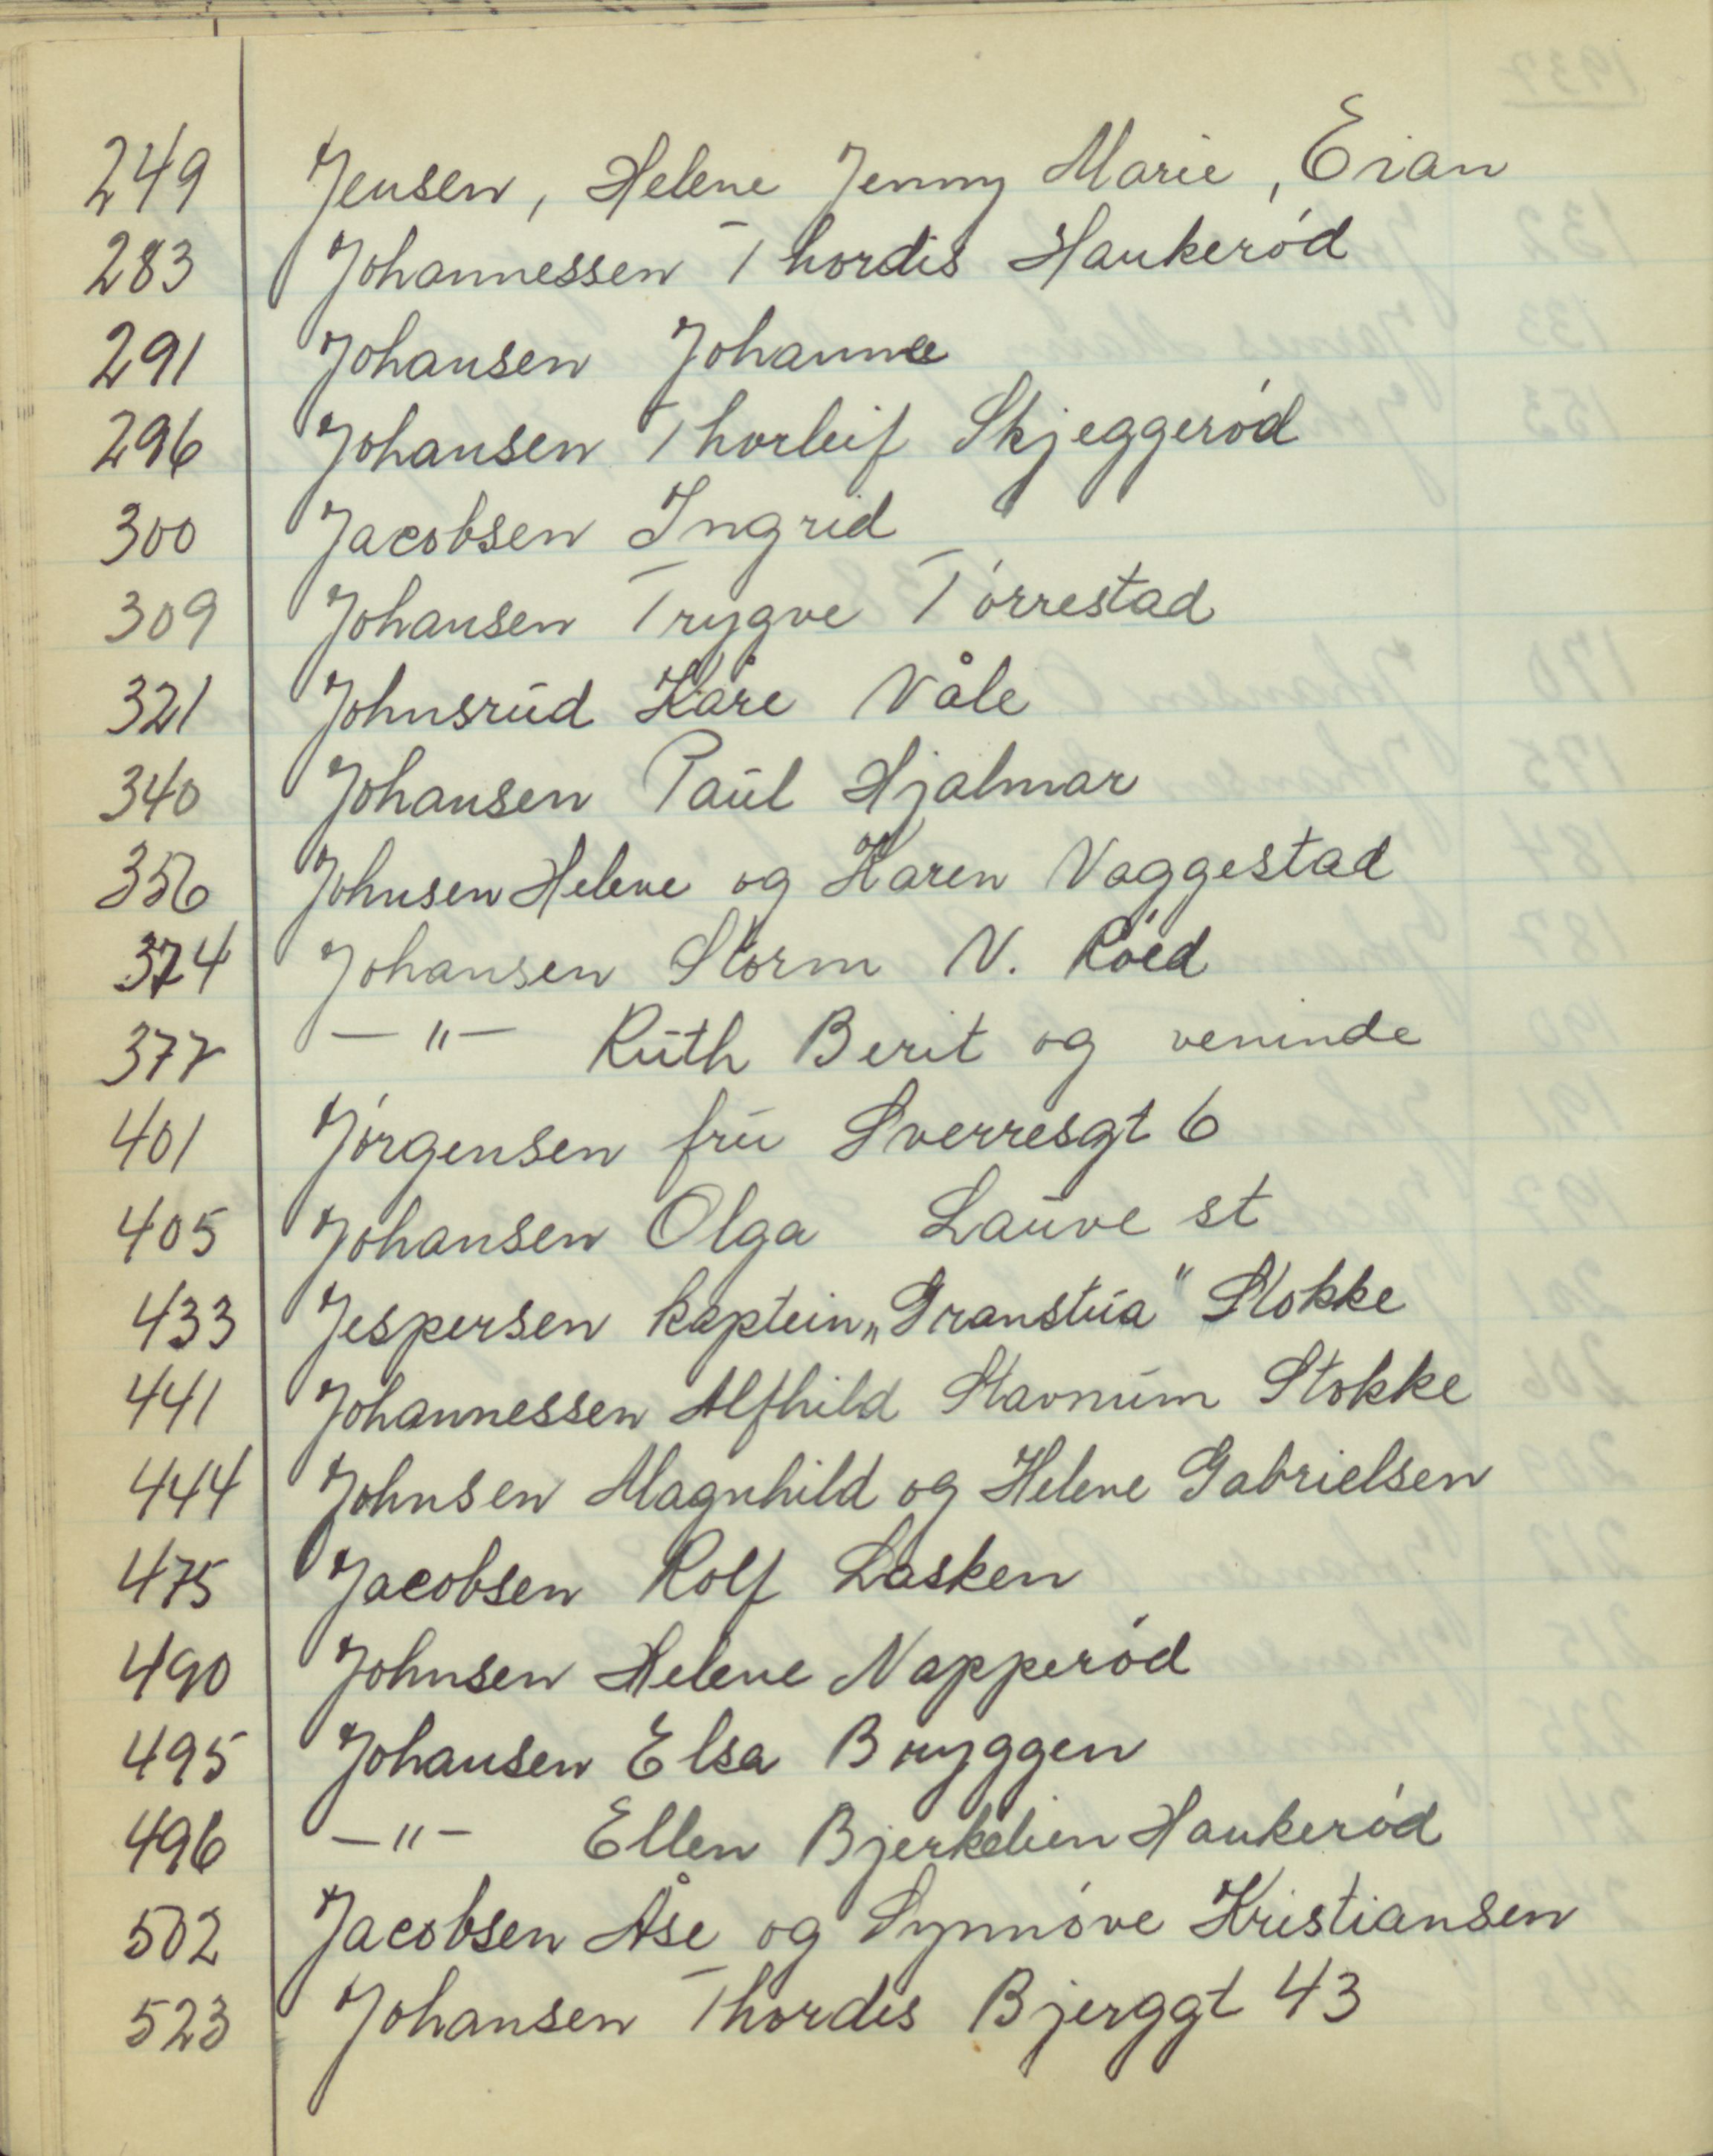 249 Jensen, Helene Jenny Marie, Eian
283 Johannessen Thordis Haukerød
291 Johansen Johanne
296 Johansen Thorleif Skjeggerød
300 Jacobsen Ingrid
309 Johansen Trygve Tørrestad
321 Johnsrud Kåre Våle
340 Johansen Paul Hjalmar
356 Johnsen Helene og Karen Vaggestad
374 Johansen Storm N. Røed
377 — " — Ruth Berit og veninde
401 Jørgensen fru Sverresgt 6
405 Johansen Olga Lauve st
433 Jespersen kaptein „Granstua" Stokke
441 Johannessen Alfhild Stavnum Stokke
444 Johnsen Magnhild og Helene Gabrielsen
475 Jacobsen Rolf Lasken
490 Johnsen Helene Napperød
495 Johansen Elsa Bryggen
496 — " — Ellen Bjerkelien Haukerød
502 Jacobsen Åse og Synnøve Kristiansen
523 Johansen Thordis Bjerggt 43